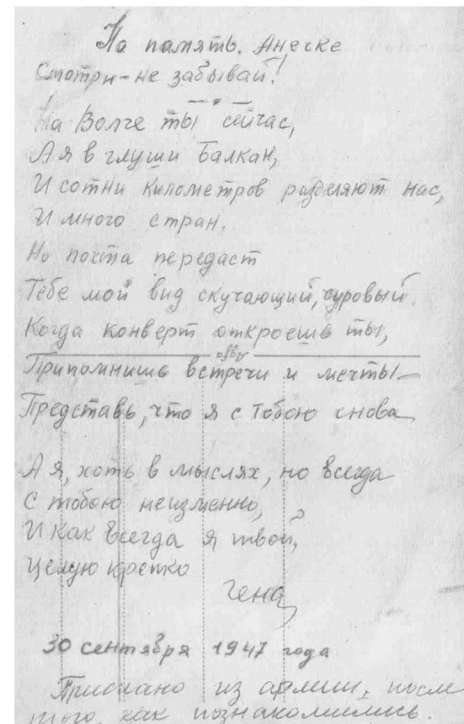 На память. Анечке
Смотри-не забывай!
На Волге ты сейчас,
А я в глуши Балкан,
И сотни километров разделяют нас,
И много стран.
Но почта передаст
Тебе мой вид скучающий, суровый.
Когда конверт откроешь ты,
Припомнишь встречи и мечты—
Представь, что я с тобою снова
А я, хоть в мыслях, но всегда
С тобою неизменно,
И как всегда я твой,
Целую крепко
Гена
30 сентября 1947 года
Прислано из армии, после
того, как познакомились.